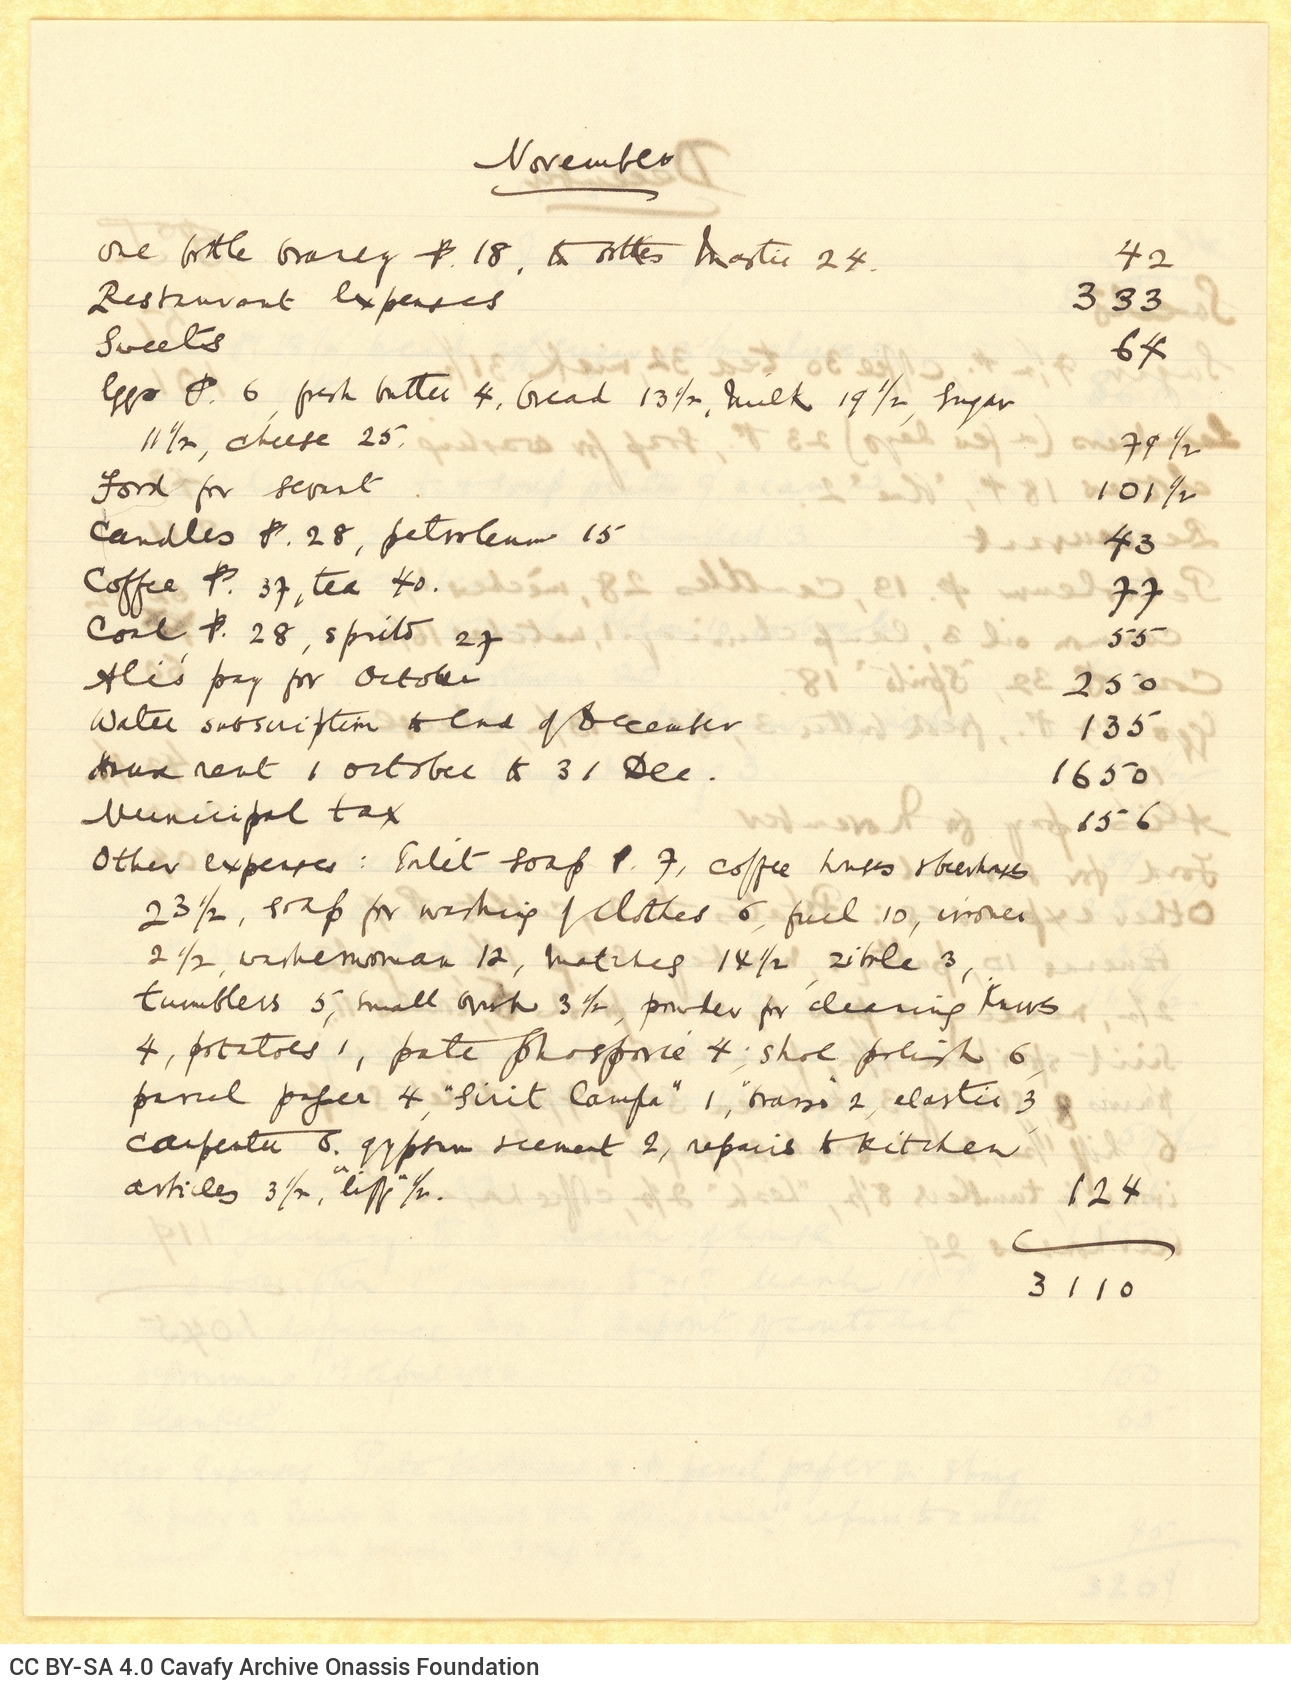 November
One bottle brandy P. 18, to bottles Mastic 24. 42
Restaurant expenses 333
Sweets 64
Eggs P. 6, fresh butter 4, bread 13 1/2, Milk 19 1/2, Sugar
11 1/2, cheese 25. 79 1/2
Food for servant 101 1/2
Candles P. 28, petroleum 15 43
Coffee P. 37, tea 40. 77
Coal P. 28, spirits 27 55
Ali's pay for October 250
Water subscription to end of December 135
House rent 1 October to 31 Dec. 1650
Municipal tax 156
Other expenses: Toilet soap P. 7, coffee houses & beerhouses
23 1/2, soap for washing of clothes 6, fuel 10, ironer
2 1/2, washerwoman 12, matches 14 1/2, zible 3,
tumblers 5, small brush 3 1/2, powder for cleaning knives
4, potatoes 1, pate phosphorie 4, shoe polish 6,
parcel paper 4, "Sirit Lampa" 1, "brasso" 2, elastic 3
carpenter 6. gypsum & cement 2, repairs to kitchen
articles 3 1/2, "liff" 1/2. 124
3110
CC BY-SA 4.0 Cavafy Archive Onassis Foundation